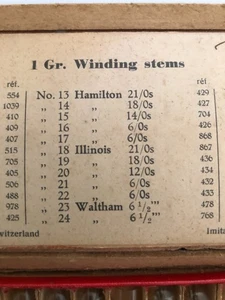 1 Gr. Winding stems
réf. réf.
554 No. 13 Hamilton 21/0s 429
1039 „ 14 „ 18/0s
410 „ 15 „ 14/0s 704
409 „ 16 „ 6/0s
407 „ 17 „ 6/0s 868
515 „ 18 Illinois 21/0s 867
705 „ 19 „ 18/0s 436
405 „ 20 „ 12/0s 434
506 „ 21 „ 6/0s 433
488 „ 22 „ 6/0s 432
978 „ 23 Waltham 6 1/2''' 438
425 „ 24 „ 6 1/2''' 768
witzerland Imita